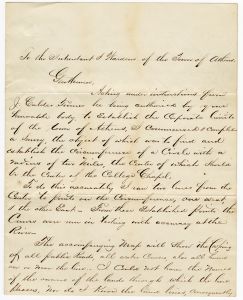 To the Intendant & Wardens of the Town of Athens.
Gentlemen,
Acting under instructions from
J. Calder Turner he being authorized by your
Honorable body to Establish the Corporate Limits
of the town of Athens, I Commenced & Completed
a Survey the object of which was to find and
establish the Circumference of a Circle with a
radius of two Miles, the Center of which should
be the Center of the College Chapel.
To do this accurately I ran two lines from the
Center to points on the Circumference, one west
& the other East – From these Established points the
Curves were run in taking with accuracy at the
River.
The accompanying Map will show the
of all public Roads, all water Courses also all
on or near the line. I could not have the Names
of the owners of the lands through which the line
Passes, nor do I know the land lines